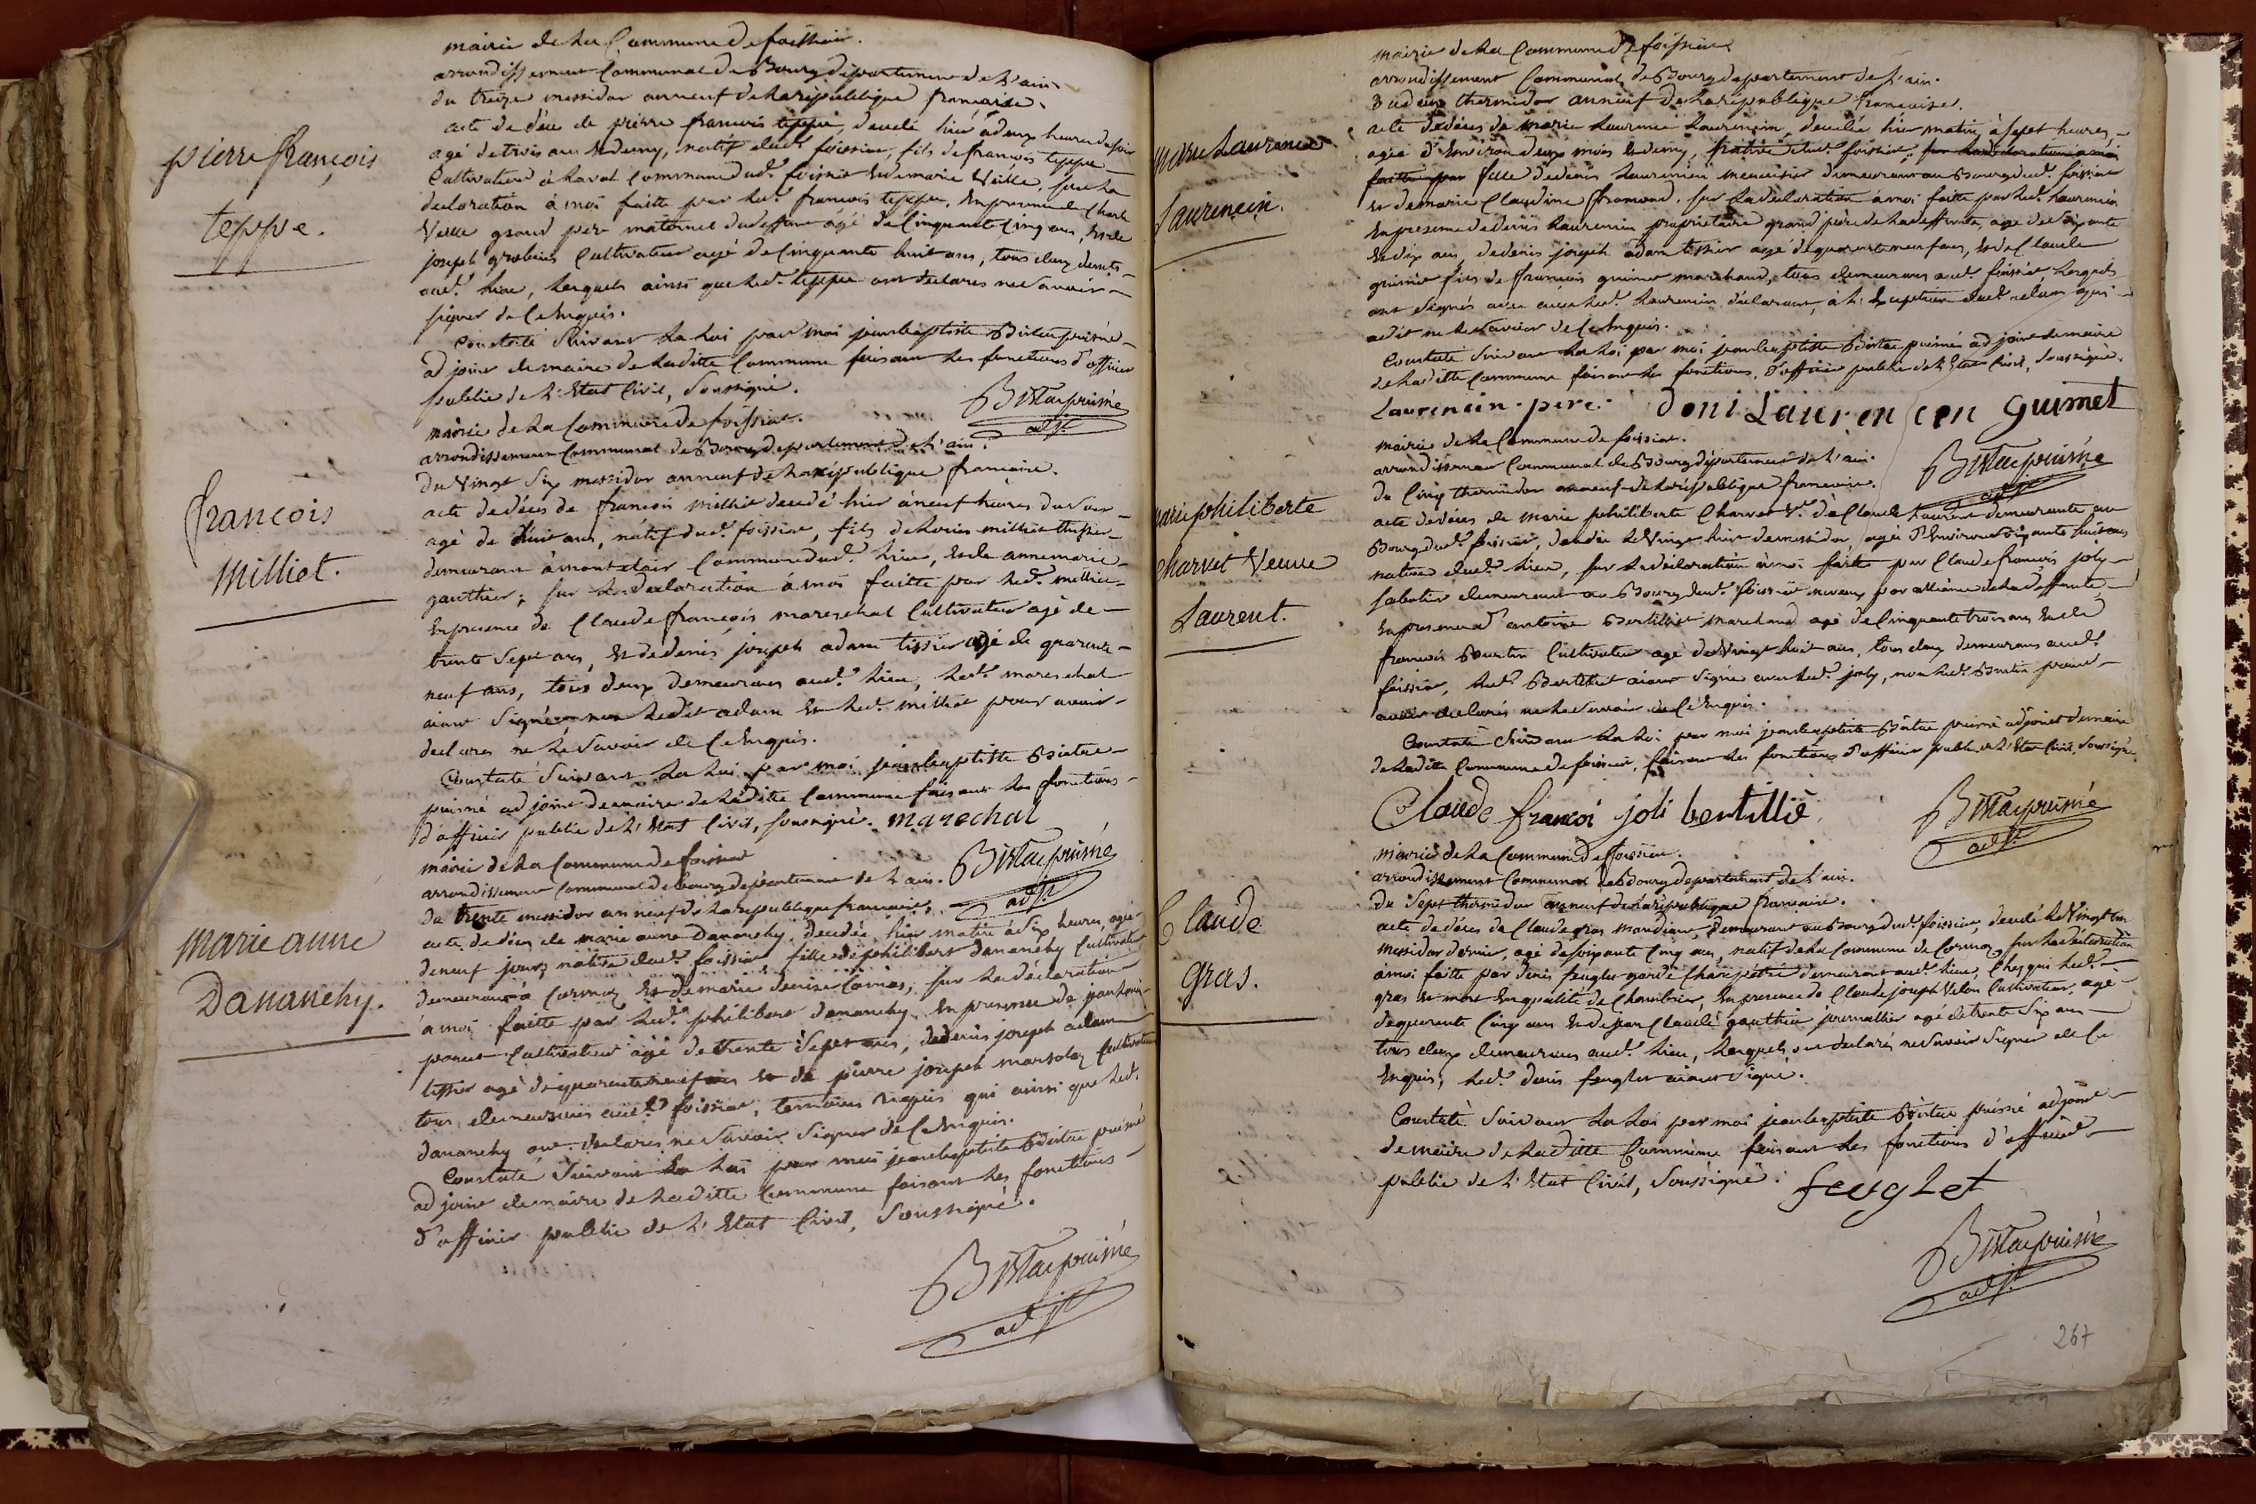 mairie de la Commune de foissiat.
arrondissement Communal de Bourg departement de l'ain.
du treize messidor an neuf de la republique française.
acte de déces de pierre francois teppe, decedé hier à deux heures du soir
agé de trois ans & demy, natif dud. foissiat, fils de francois teppe
Cultivateur à Commune dud. foissiat & de marie Veille, sur la
declaration à moi faitte par led. francois teppe, En presence de Charle
Veille grand pere maternel du deffunt agé de Cinquante Cinq ans, & de
joseph Cultivateur agé de Cinquante huit ans, tous deux demts
aud. lieu, lesquels ainsi que led. teppe ont declarés ne Savoir
signer de Ce Enquis.
Constaté Suivant La Loi par moi jeanbaptiste puisné
adjoint de maire de Laditte Commune faisant Les fonctions d'officier
public de L'Etat Civil, Soussigné.
pierre françois
teppe.
mairie de La Commune de foissiat.
arrondissement Communal de Bourg departement de L'ain.
du Vingt Six messidor an neuf de La republique francaise.
acte de déces de francois milliet decedé hier à neuf heures du soir
agé de huit ans, natif dud. foissiat, fils de Louis milliet
demeurant à montclair Commune dud. lieu, & de anne marie
gauthier, sur La declaration à moi faitte par led. milliet
En presence de Claude françois mareschal Cultivateur agé de
trente Sept ans, & de denis joseph adam tissier agé de quarante
neuf ans, tous deux demeurans aud. lieu, led. mareschal
aiant Signé non ledit adam & led. milliet pour avoir
declarés ne le Savoir de Ce Enquis.
Constaté Suivant La Loi par moi jeanbaptiste
puisné adjoint de maire de Laditte Commune faisant Les fonctions
d'officier public de L'Etat Civil, soussigné. marechal
françois
Milliet.
mairie de La Commune de foissiat
arrondissement Communal de bourg departement de L'ain.
du trente messidor an neuf de La republique francaise.
acte de déces de marie anne Dananchy, decedée hier matin à Six heures, agée
de neuf jours native dud. foissiat fille de philibert dananchy Cultivateur
demeurant à Cormoz & de marie denise sur La declaration
à moi faitte par led. philibert dananchy, En presence de
Cultivateur agé de trente Sept ans, de denis joseph adam
tissier agé de quarante neuf ans & de pierre joseph Cultivateur
tous demeurans aud. foissiat, temoins requis qui ainsi que led.
dananchy ont declarés ne Savoir Signer de Ce Enquis.
Constaté Suivant La Loi par moi jeanbaptiste puisné
adjoint de maire de Laditte Commune faisant Les fonctions
d'officier public de L'Etat Civil, Soussigné.
Marie anne
Dananchy.
adjt
mairie de La Commune de foissiat
arrondissement Communal de Bourg departement de L'ain.
du deux thermidor an neuf de La republique francaise.
acte de déces de marie Laurence Laurencin, decedée hier matin à Sept heures,
agée d'Environ deux mois & demy, native dud. foissiat, sur La declaration a moi
faitte par fille de denis Laurencin menuisier demeurant au Bourg dud. foissiat
& de marie Claudine fromond, sur La declaration à moi faitte par led. Laurencin
En presence de denis Laurencin proprietaire grand père de La deffunte, agé de soixante
& dix ans, de denis joseph adam tissier agé de quarante neuf ans, & de Claude
guimet fils de francois guimet marchand, tous demeurans aud. foissiat Lesquels
ont Signés avec led. Laurencin declarant, à L'Exception dud. adam qui
a dit ne le Savoir de Ce Enquis.
Constaté Suivant La Loi par moi jeanbaptiste puisné adjoint de maire
de Laditte Commune faisant Les fonctions d'officier public de L'Etat Civil, Soussigné.
Laurencin pere. doni Laurencin guimet
marie Laurence
Laurencin.
mairie de La Commune de foissiat.
arrondissement Communal de Bourg departement de L'ain.
du Cinq thermidor an neuf de La republique francaise.
acte de déces de marie philiberte Charvet Ve. de Claude Laurent demeurante au
Bourg dud. foissiat, decedée Le Vingt huit de messidor, agée d'Environ soixante huit ans
native dud. lieu, sur La declaration à moi faitte par Claude francois joly
sabotier demeurant au Bourg dud. foissiat neveux par alliance de La deffunte
En presence d'antoine Bertillet marchand agé de Cinquante trois ans & de
francois Cultivateur agé de Vingt huit ans, tous deux demeurans aud.
foissiat, led. Bertillet aiant Signé avec led. joly, non led. pour
avoir declarés ne le Savoir de Ce Enquis.
Constaté Suivant La Loi par moi jeanbaptiste puisné adjoint de maire
de Laditte Commune de foissiat, faisant Les fonctions d'officier public de L'Etat Civil Soussigné.
Claude françoi joli bertilliè
marie philiberte
Charvet Veuve
Laurent.
mairie de La Commune de foissiat.
arrondissement Communal de Bourg departement de L'ain.
du Sept thermidor an neuf de La republique francaise.
acte de déces de Claude gras mandiant, demeurant au Bourg dud. foissiat, decedé Le Vingt
messidor dernier, agé de soixante Cinq ans, natif de La Commune de Cormoz, sur La declaration
a moi faitte par denis feuglet garde Champetre demeurant aud. lieu, Chez qui led.
gras Est mort En qualité de Chambrier, En presence de Claude joseph Velon Cultivateur, agé
de quarante Cinq ans & de jean Claude gauthier journallier agé de trente Six ans
tous deux demeurans aud. lieu, Lesquels ont declarés ne Savoir Signer de Ce
Enquis, led. denis feuglet aiant Signé.
Constaté Suivant La Loi par moi jeanbaptiste puisné adjoint
de maire de Laditte Commune faisant Les fonctions d'officier
public de L'Etat Civil, Soussigné. feuglet
Claude
gras.
adjt
267